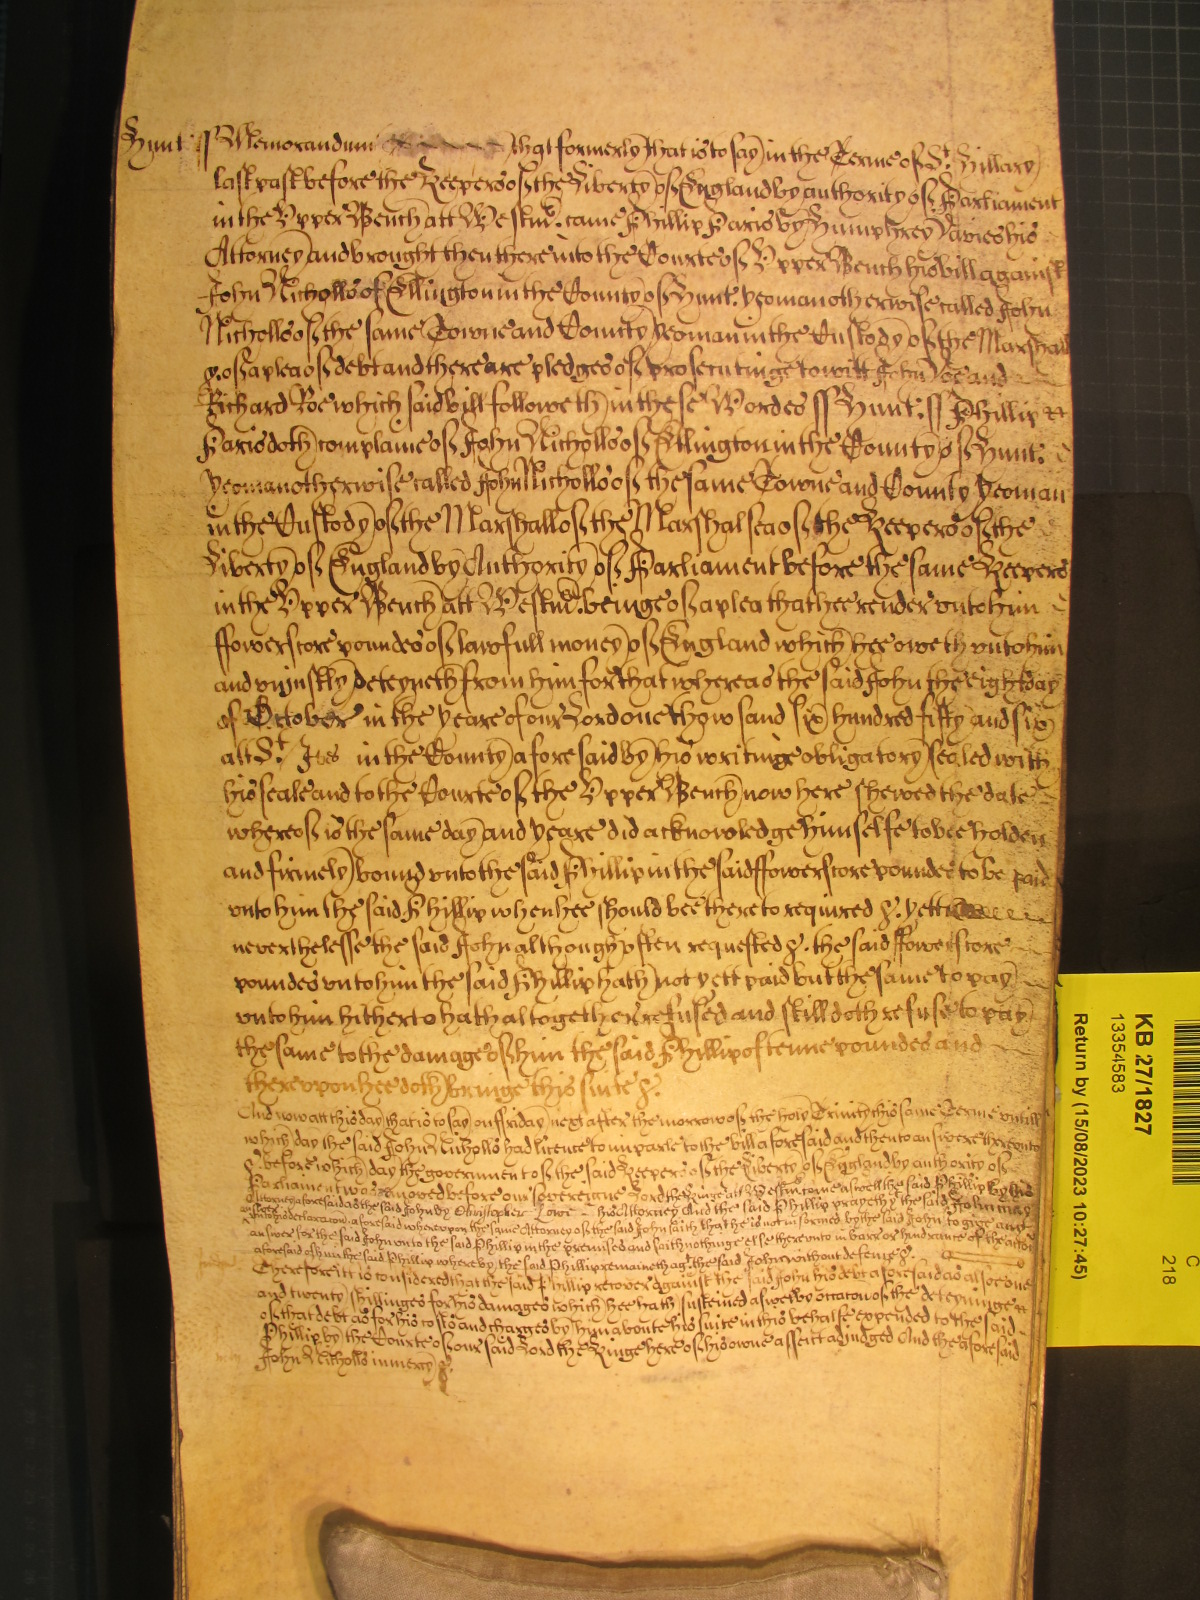 Hunt: ſſ Memorandum that formerly that is to say in the Terme of St. Hillary
last past before the Keepers of the Liberty of England by authority of Parliament
in the Upper Bench att Westmr. came Phillip Paris by Humphrey Davies his
Attorney and brought then there into the Courte of Upper Bench his bill against
John Nicholls of Ellington in the County of Hunt. yeoman otherwise called John
Nicholls of the same Towne and County yeoman in the Custody of the Marshall
&c. of a plea of debt and there are pledges of prosecutinge to witt John Doe and
Richard Roe which said bill followeth in these Wordes ſſ Hunt: ſſ Phillip
Paris doth complaine of John Nicholls of Ellington in the County of Hunt.
yeoman otherwise called John Nicholls of the same Towne and County yeoman
in the Custody of the Marshall of the Marshalsea of the Keepers of the
Liberty of England by Authority of Parliament before the same Keepers
in the Upper Bench att Westmr. beinge of a plea that hee render unto him
ffowerscore poundes of lawfull money of England which hee oweth unto him
and uniustly deteyneth from him for that whereas the said John the eight day
of October in the yeare of our Lord one thowsand six hundred fifty and six
att St. Ives in the County aforesaid by his writinge obligatory sealed with
his seale and to the Courte of the Upper Bench now here shewed the date
whereof is the same day and yeare did acknowledge himselfe to bee holden
and firmely bound unto the said Phillip in the said ffowerscore poundes to be paid
unto him the said Phillip when hee should bee thereto required &c. yett
neverthelesse the said John although often requested &c. the said ffowerscore
poundes unto him the said Phillip hath not yett paid but the same to pay
unto him hitherto hath altogether refused and still doth refuse to pay
the same to the damage of him the said Phillip of tenne poundes and
thereupon hee doth bringe this suite &c.
And now att this day that is to say on ffriday next after the morrow of the holy Trinity this same Terme untill
which day the said John Nicholls had licence to imparle to the bill aforesaid and then to answere thereunto
&c. before which day the government of the said Keepers of the Liberty of England by authority of
Parliament was removed before our sovereigne Lord the Kinge att Westmr. come aswell the said Phillip by his
Attorney aforesaid as the said John by Christopher Lowe his Attorney And the said Phillip prayeth the said John may
answer unto his declaracion aforesaid whereupon the same Attorney of the said John saith that he is not informed by the said John to give any
answer for the said John unto the said Phillip in the premises and saith nothinge else thereunto in barr or hindrance of the accion
aforesaid of him the said Phillip whereby the said Phillip remaineth agt. the said John without defense &c.
Therefore itt is considered that the said Phillip recover against the said John his debt aforesaid as also one
and twenty shillinges for his damages which hee hath susteined aswell by occacon of the deteyninge
of that debt as for his costs and charges by him aboute his suite in this behalfe expended to the said
Phillip by the Courte of our said Lord the Kinge here of his owne assent adjudged And the aforesaid
John Nicholls in mercy &c.
KB 27/1827
13354583
Return by (15/08/2023 10:27:45)
C
218